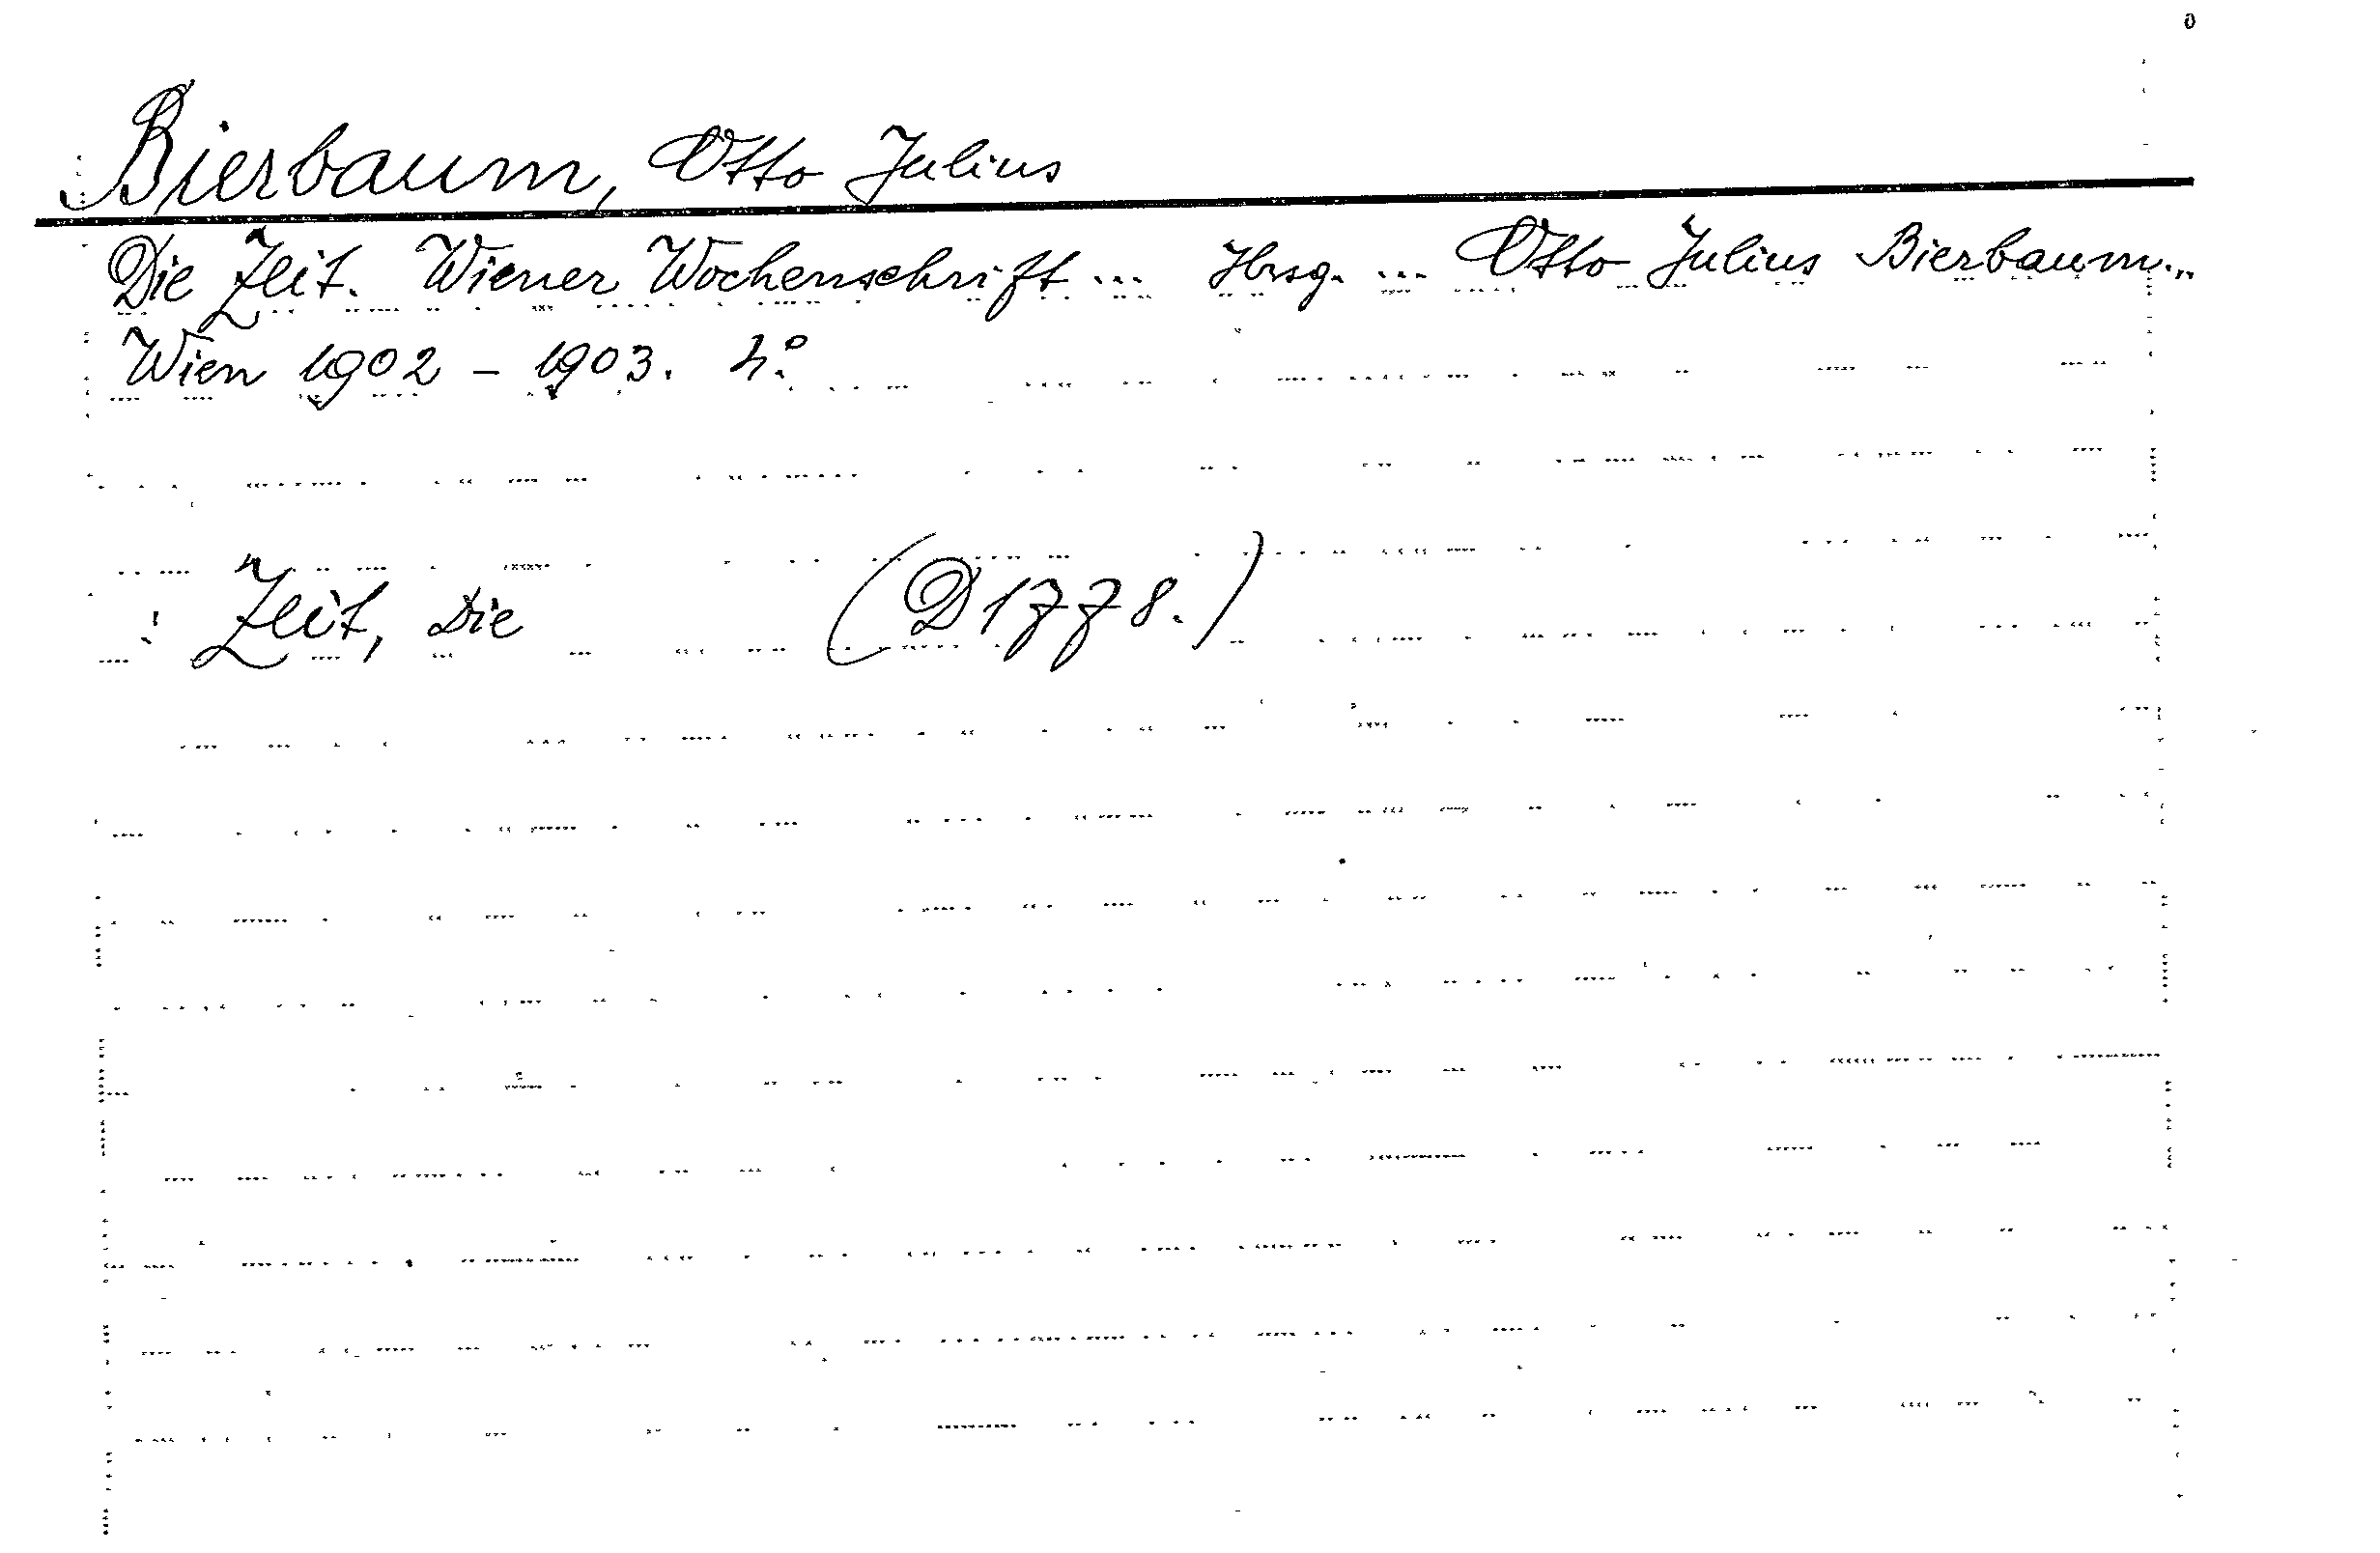 Bierbaum, Otto Julius
Die Zeit. Wiener Wochenschrift ... Hrsg. ... Otto Julius Bierbaum...
Wien 1902 - 1903. 4°.
: Zeit, Die (D 1778.)